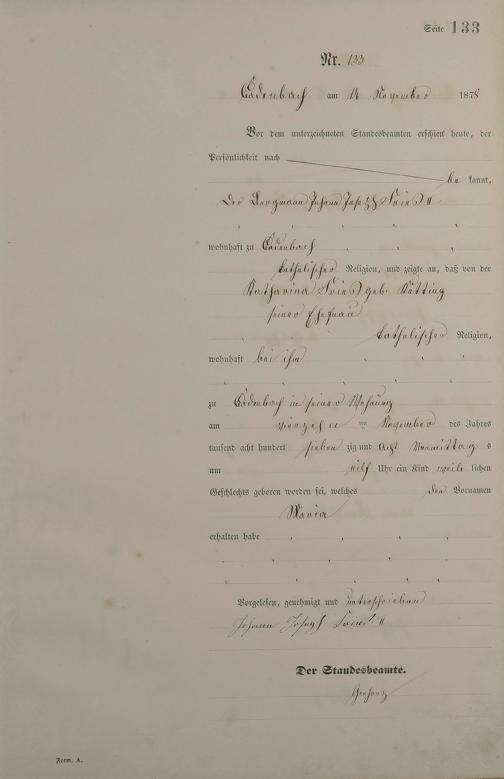 Seite 133
Nr. 133
Cadenbach am 14 November 1878
Vor dem unterzeichneten Standesbeamten erschien heute, der
Persönlichkeit nach
be kannt,
der Bergmann Johann Joseph II
wohnhaft zu Cadenbach
katholischer Religion, und zeigte an, daß von der
Katharina geb. Kötting
seiner Ehefrau
katholischer Religion,
wohnhaft bei ihm
zu Cadenbach in seiner Wohnung
am vierzehn ten November des Jahres
tausend acht hundert sieben zig und acht Vormittag s
um eilf Uhr ein Kind weib lichen
Geschlechts geboren worden sei, welches den Vornamen
Maria
erhalten habe
Vorgelesen, genehmigt und unterschrieben
Johann Joseph II
Der Standesbeamte.
Form. A.